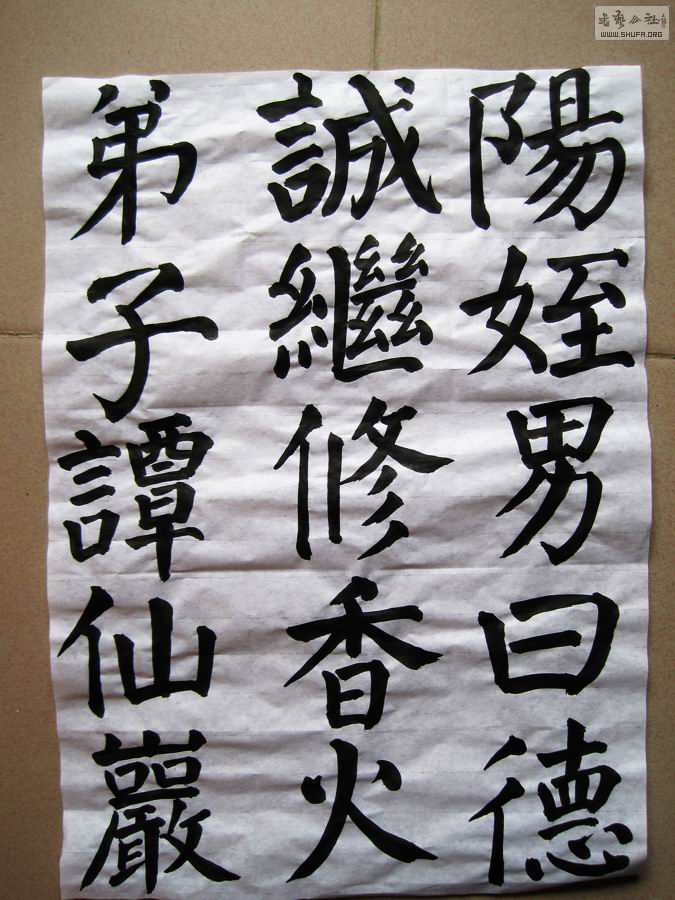 陽姪男曰德
誠繼修香火
弟子譚仙巖
書藝公社
WWW.SHUFA.ORG